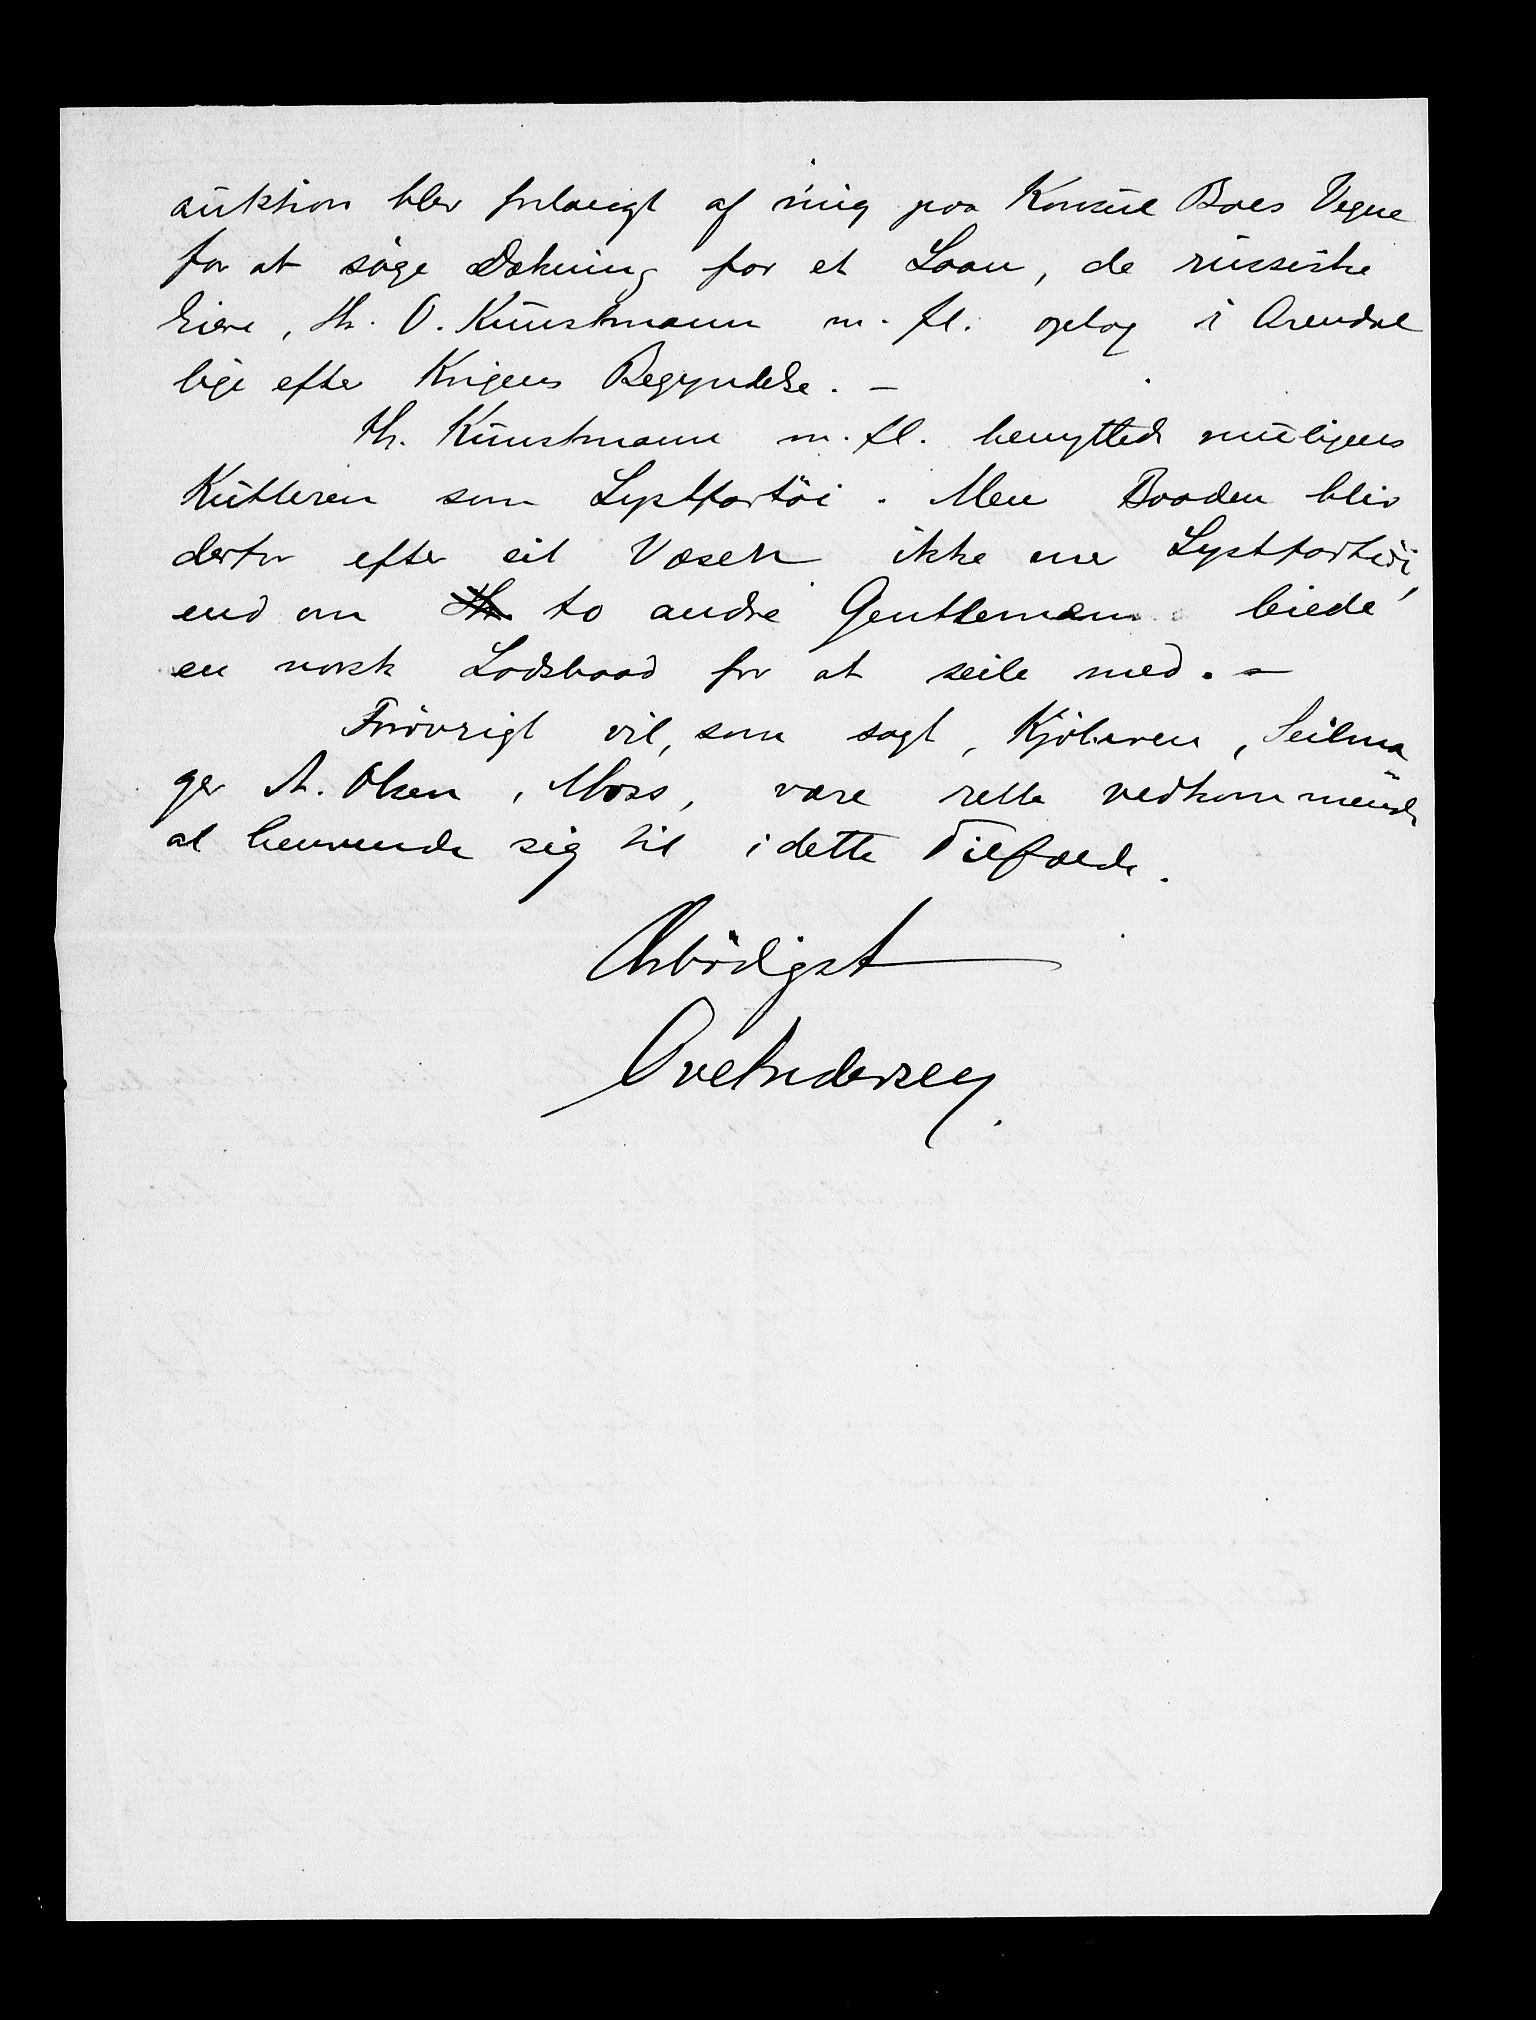 auktion blev forlangt af mig paa Konsul Boes Vegne
for at söge Dækning for et Laan, de russiske
Eiere, Hr. O. Kunstmann m. fl. optog i Arendal
lige efter Krigens Begyndelse. —
Hr. Kunstmann m. fl. benyttede muligens
Kutteren som Lystfartöi. Men Baaden blev
derfor efter sit Væsen ikke mer Lystfartöi,
end om to andre Gentlemæn leiede
en norsk Lodsbaad for at seile med. —
Forövrigt vil, som sagt, Kjöberen, Seilma-
ger A. Olsen, Moss, være rette vedkommende
at henvende sig til i dette Tilfælde.
Ærbödigst
Ove Andersen.